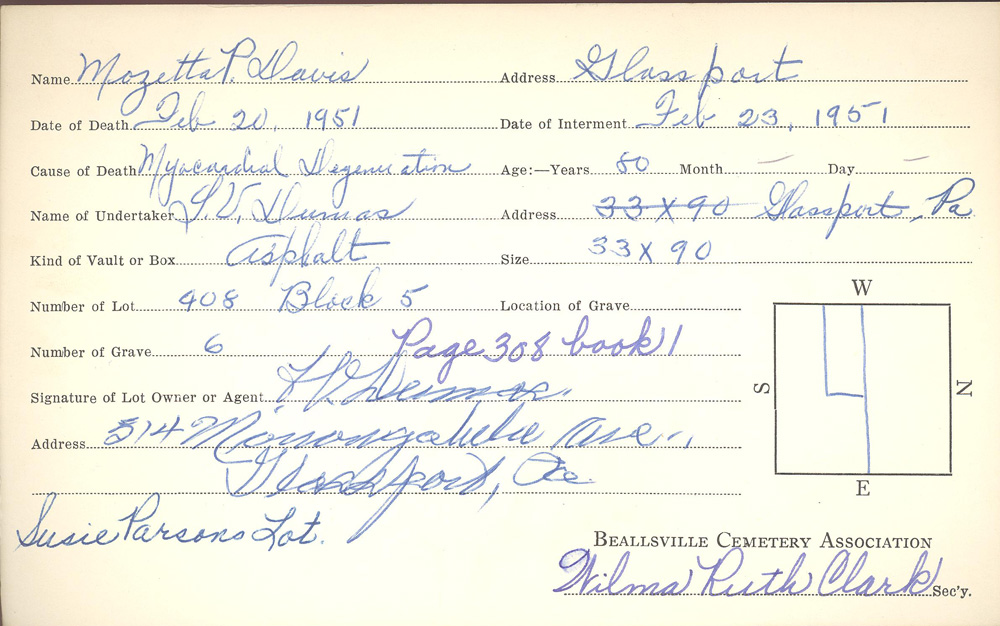 Name Mozetta P. Davis Address Glassport
Date of Death Feb 20, 1951 Date of Interment Feb 23, 1951
Cause of Death Myocardial Degeneration Age:—Years 80 Month — Day —
Name of Undertaker L.V. Dumas Address 33 x 90 Glassport, Pa
Kind of Vault or Box Asphalt Size 33 x 90
Number of Lot 408 Block 5 Location of Grave
Number of Grave 6 Page 308 book 1
Signature of Lot Owner or Agent L.V. Dumas.
Address 514 Monongahela Ave.,
Glassport, Pa.
W
S
N
E
Susie Parsons Lot.
BEALLSVILLE CEMETERY ASSOCIATION
Wilma Ruth Clark Sec'y.